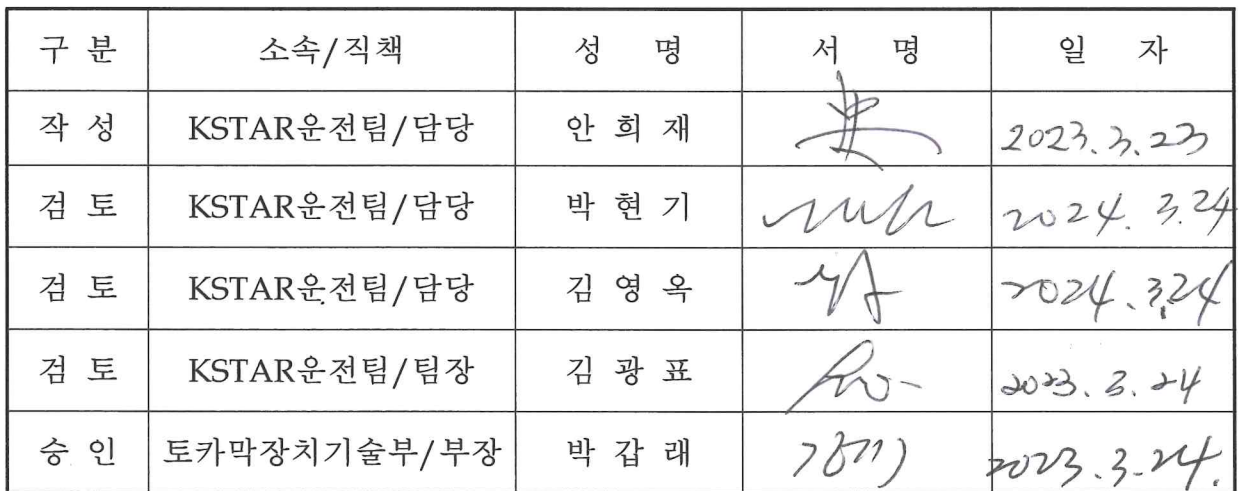 구 분 소속/직책 성 명 서 명 일 자
작 성 KSTAR운전팀/담당 안 희 재 2023. 3. 23
검 토 KSTAR운전팀/담당 박 현 기 2024. 3.24
검 토 KSTAR운전팀/담당 김 영 옥 2024. 3.24
검 토 KSTAR운전팀/팀장 김 광 표 2023. 3. 24
승 인 토카막장치기술부/부장 박 갑 래 2023. 3. 24.